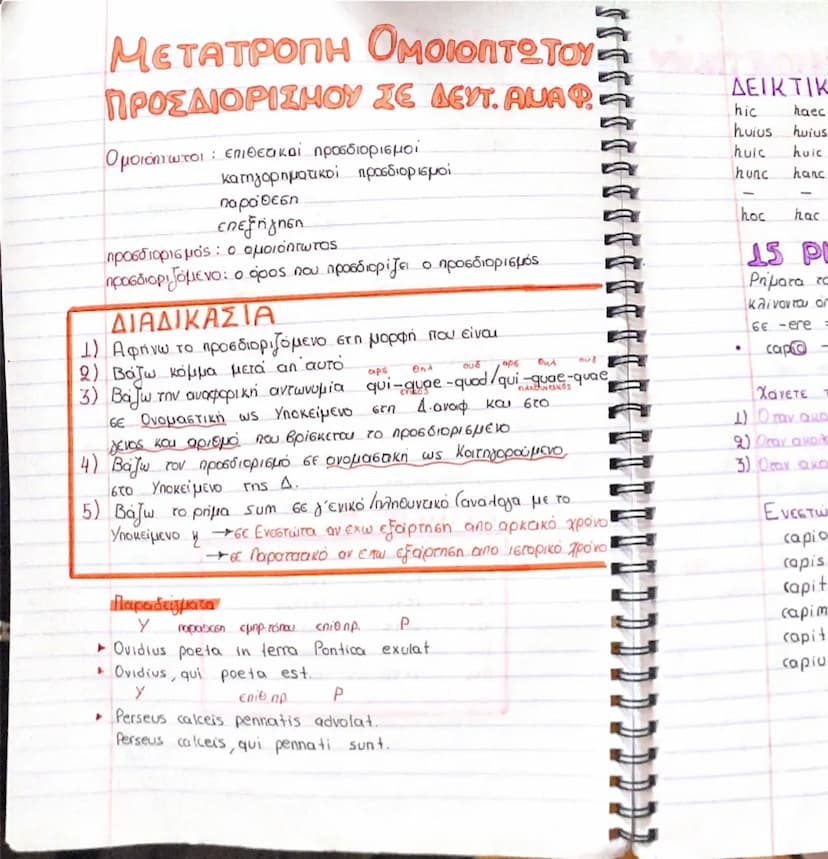 ΜΕΤΑΤΡΟΠΗ ΟΜΟΙΟΠΤΩΤΟΥ
ΠΡΟΣΔΙΟΡΙΣΜΟΥ ΣΕ ΔΕΥΤ. ΑΝΑΦ.
Ομοιόπτωτοι : επιθετικοί προσδιορισμοί
κατηγορηματικοί προσδιορισμοί
παράθεση
επεξήγηση
προσδιορισμός : ο ομοιόπτωτος
προσδιοριζόμενο : ο όρος που προσδιορίζει ο προσδιορισμός
ΔΙΑΔΙΚΑΣΙΑ
1) Αφήνω το προσδιοριζόμενο στη μορφή που είναι
2) Βάζω κόμμα μετά απ' αυτό
αρσ θηλ ουδ αρσ θηλ ουδ
3) Βάζω την αναφορική αντωνυμία qui-quae-quod/qui-quae-quae
ενικός πληθυντικός
σε Ονομαστική ως Υποκείμενο στη Δ.αναφ και στο
γένος και αριθμό που βρίσκεται το προσδιορισμένο
4) Βάζω τον προσδιορισμό σε ονομαστική ως Κατηγορούμενο
στο Υποκείμενο της Δ.
5) Βάζω το ρήμα sum σε γ' ενικό/πληθυντικό (αναλογα με το
Υποκείμενο η →σε Ενεστώτα αν έχω εξάρτηση από αρκτικό χρόνο
→σε Παρατατικό αν έχω εξάρτηση από ιστορικό χρόνο
Παραδείγματα
Υ παράθεση εμπρ.τόπου επιθ πρ. Ρ
▸ Ovidius poeta in terra Pontica exulat
▸ Ovidius, qui poeta est.
Υ επιθ πρ Ρ
▸ Perseus calceis pennatis advolat.
Perseus calceis, qui pennati sunt.
ΔΕΙΚΤΙΚ
hic haec
huius huius
huic huic
hunc hanc
— —
hoc hac
15 Ρ
Ρήματα το
κλίνονται
σε -ere =
• capio →
Χάνετε τ
1) Όταν ακο
2) Όταν ακολ
3) Όταν ακο
Ενεστώ
capio
capis
capit
capim
capit
capiu